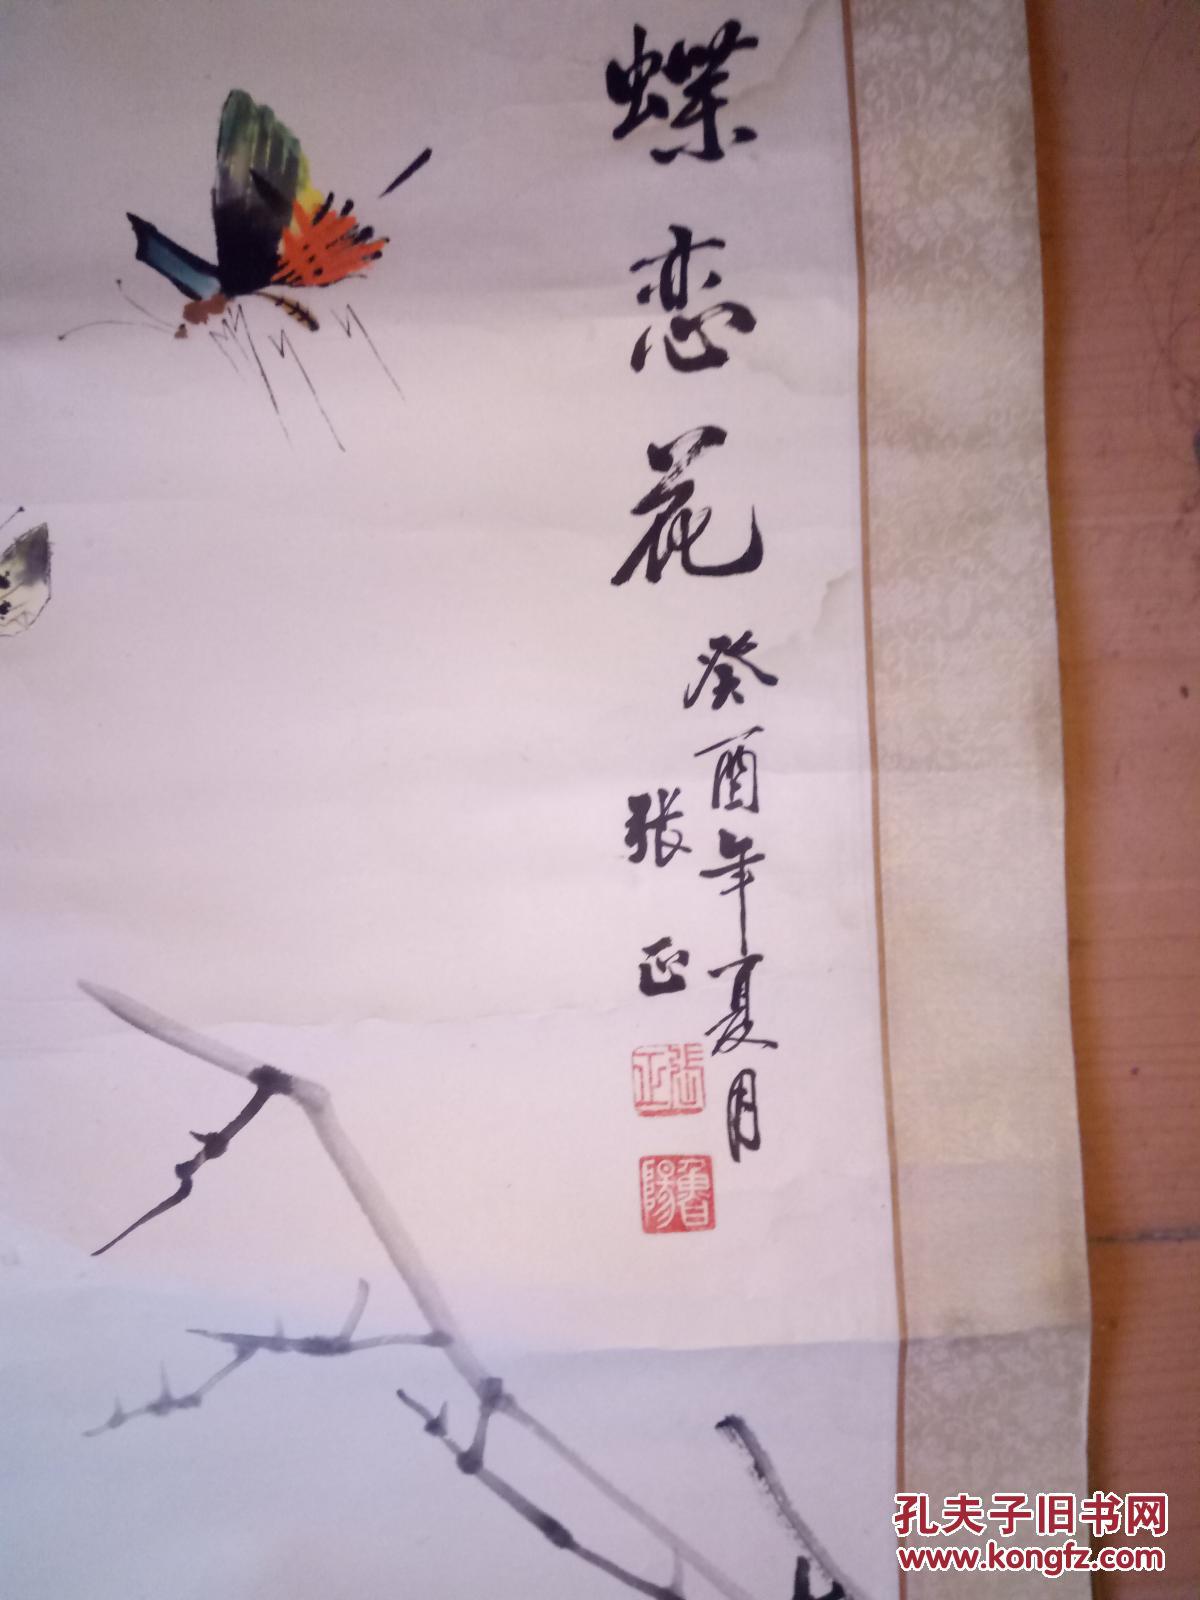 蝶恋花
癸酉年夏月
张正
張正
魯陽
孔夫子旧书网
www.kongfz.com